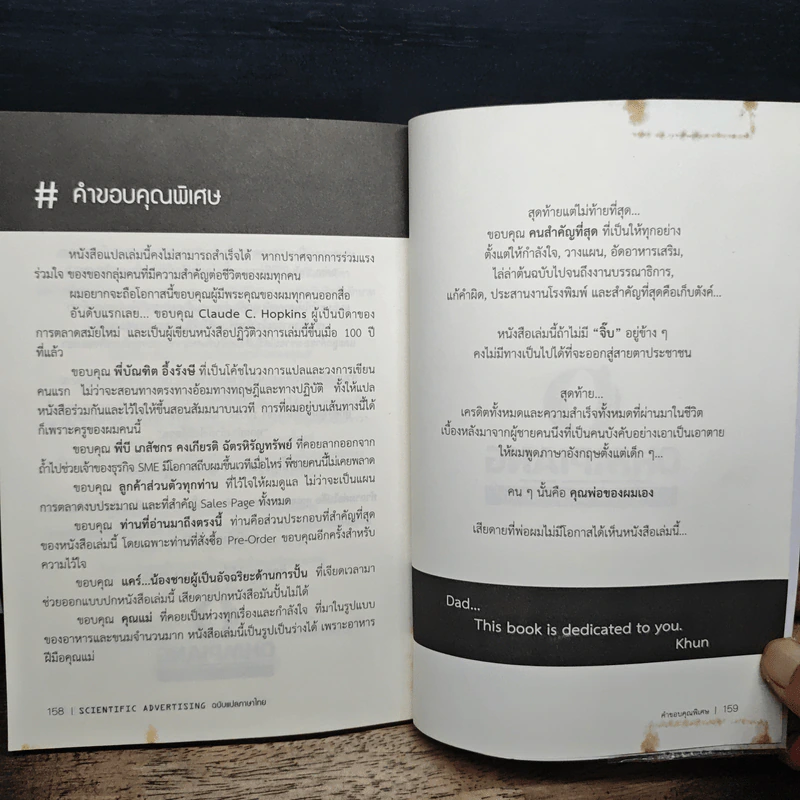 # คำขอบคุณพิเศษ
หนังสือแปลเล่มนี้คงไม่สามารถสำเร็จได้ หากปราศจากการร่วมแรง
ร่วมใจ ของของกลุ่มคนที่มีความสำคัญต่อชีวิตของผมทุกคน
ผมอยากจะถือโอกาสนี้ขอบคุณผู้มีพระคุณของผมทุกคนออกสื่อ
อันดับแรกเลย... ขอบคุณ Claude C. Hopkins ผู้เป็นบิดาของ
การตลาดสมัยใหม่ และเป็นผู้เขียนหนังสือปฏิวัติวงการเล่มนี้ขึ้นเมื่อ 100 ปี
ที่แล้ว
ขอบคุณ พี่บัณฑิต อึ้งรังษี ที่เป็นโค้ชในวงการแปลและวงการเขียน
คนแรก ไม่ว่าจะสอนทางตรงทางอ้อมทางทฤษฎีและทางปฏิบัติ ทั้งให้แปล
หนังสือร่วมกันและไว้ใจให้ขึ้นสอนสัมมนาบนเวที การที่ผมอยู่บนเส้นทางนี้ได้
ก็เพราะครูของผมคนนี้
ขอบคุณ พี่บี เภสัชกร คงเกียรติ ฉัตรหิรัญทรัพย์ ที่คอยลากออกจาก
ถ้ำไปช่วยเจ้าของธุรกิจ SME มีโอกาสถีบผมขึ้นเวทีเมื่อไหร่ พี่ชายคนนี้ไม่เคยพลาด
ขอบคุณ ลูกค้าส่วนตัวทุกท่าน ที่ไว้ใจให้ผมดูแล ไม่ว่าจะเป็นแผน
การตลาดงบประมาณ และที่สำคัญ Sales Page ทั้งหมด
ขอบคุณ ท่านที่อ่านมาถึงตรงนี้ ท่านคือส่วนประกอบที่สำคัญที่สุด
ของหนังสือเล่มนี้ โดยเฉพาะท่านที่สั่งซื้อ Pre-Order ขอบคุณอีกครั้งสำหรับ
ความไว้ใจ
ขอบคุณ แคร์...น้องชายผู้เป็นอัจฉริยะด้านการปั้น ที่เจียดเวลามา
ช่วยออกแบบปกหนังสือเล่มนี้ เสียดายปกหนังสือมันปั้นไม่ได้
ขอบคุณ คุณแม่ ที่คอยเป็นห่วงทุกเรื่องและกำลังใจ ที่มาในรูปแบบ
ของอาหารและขนมจำนวนมาก หนังสือเล่มนี้เป็นรูปเป็นร่างได้ เพราะอาหาร
ฝีมือคุณแม่
158 | SCIENTIFIC ADVERTISING ฉบับแปลภาษาไทย
สุดท้ายแต่ไม่ท้ายที่สุด...
ขอบคุณ คนสำคัญที่สุด ที่เป็นให้ทุกอย่าง
ตั้งแต่ให้กำลังใจ, วางแผน, อัดอาหารเสริม,
ไล่ล่าต้นฉบับไปจนถึงงานบรรณาธิการ,
แก้คำผิด, ประสานงานโรงพิมพ์ และสำคัญที่สุดคือเก็บตังค์...
หนังสือเล่มนี้ถ้าไม่มี “จิ๊บ” อยู่ข้าง ๆ
คงไม่มีทางเป็นไปได้ที่จะออกสู่สายตาประชาชน
สุดท้าย...
เครดิตทั้งหมดและความสำเร็จทั้งหมดที่ผ่านมาในชีวิต
เบื้องหลังมาจากผู้ชายคนนึงที่เป็นคนบังคับอย่างเอาเป็นเอาตาย
ให้ผมพูดภาษาอังกฤษตั้งแต่เด็ก ๆ...
คน ๆ นั้นคือ คุณพ่อของผมเอง
เสียดายที่พ่อผมไม่มีโอกาสได้เห็นหนังสือเล่มนี้...
Dad...
This book is dedicated to you.
Khun
คำขอบคุณพิเศษ | 159